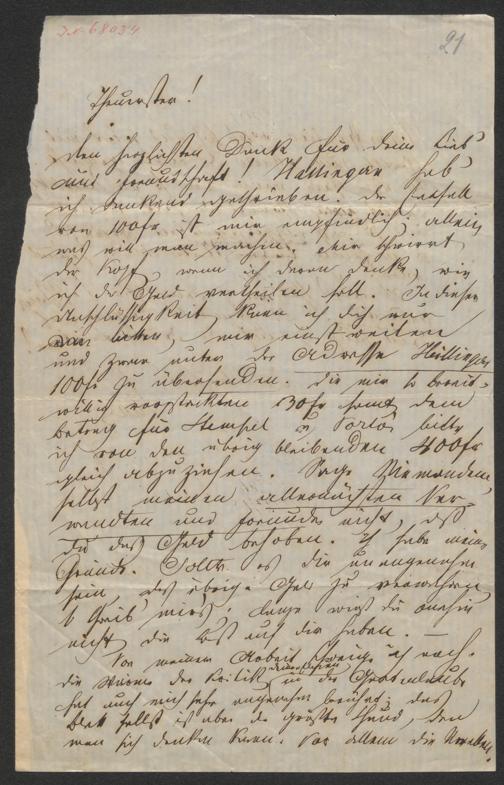 I.N. 68034
21
Theuerster!
Den herzlichsten Dank für deine Lieb'
und Freundschaft! Hallinger hab'
ich dankend geschrieben. Der Entfall
von 100 fr ist mir empfindlich; allein
was will man machen. Mir schwirrt
der Kopf, wenn ich daran denke, wie
ich das Geld vertheilen soll. In dieser
Unschlüssigkeit kann ich dich nur
bitten, mir einstweilen
und zwar unter der Adresse Hallinger
100 fr zu übersenden. Die mir so bereit-
willig vorgestreckten 30 fr samt dem
Betrag für Stempel u Porto bitte
ich von den übrig bleibenden 400 fr
gleich abzuziehen. Sage Niemandem,
selbst meinen allernächsten Ver-
wandten und Freunden nicht, daß
du das Geld behoben. Ich habe meine
Gründe. Sollte es dir unangenehm
sein, das übrige Geld zu verwahren,
so schreib' mir's. Lange wirst du ohnehin
nicht die Last auf dir haben. —
Von meinen Arbeiten schweige ich noch.
die Wärme der Kritik in der Gartenlaube
hat auch mich sehr angenehm berührt; das
Blatt selbst ist aber der größte Schund, den
man sich denken kann. Vor allem die Novellen,